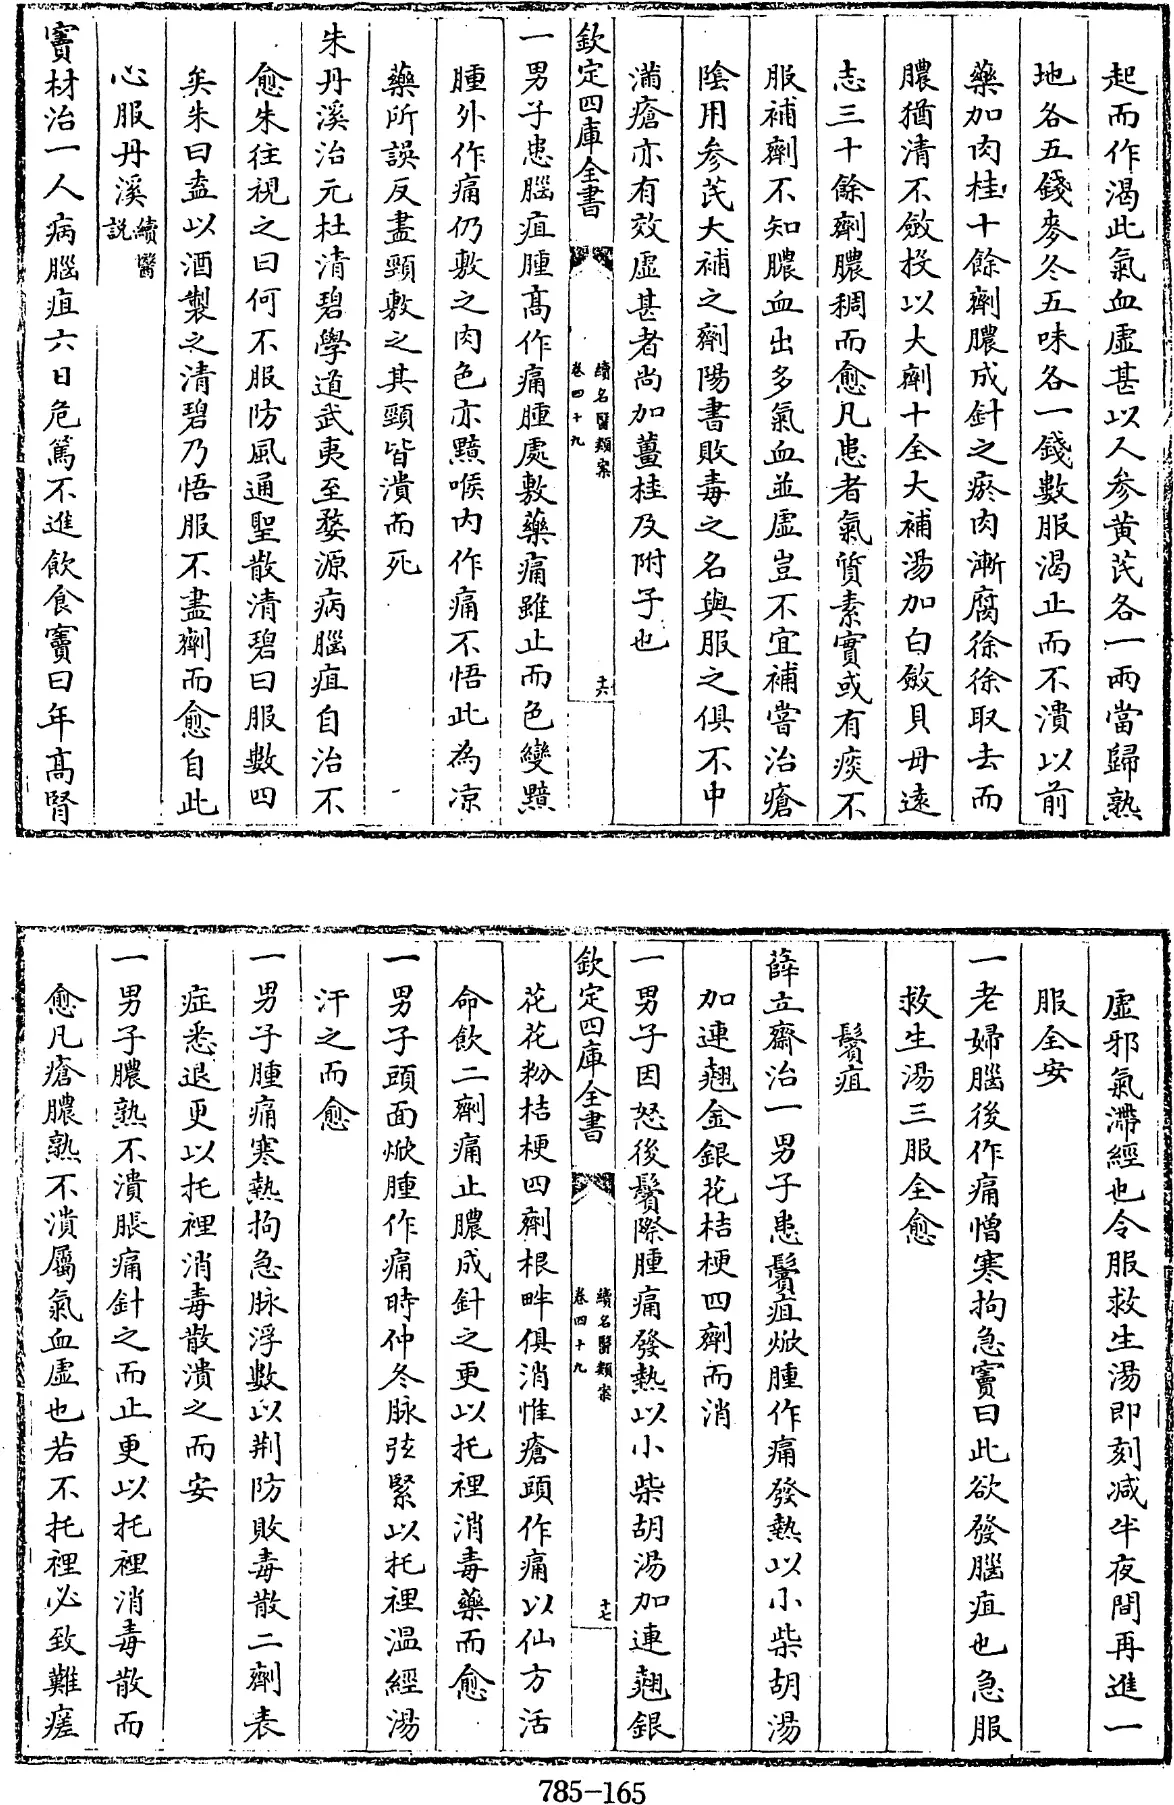 起而作渴此氣血虛甚以人參黄芪各一兩當歸熟
地各五錢麥冬五味各一錢數服渴止而不潰以前
藥加肉桂十餘劑膿成針之瘀肉漸腐徐徐取去而
膿猶清不斂投以大劑十全大補湯加白斂貝母遠
志三十餘劑膿稠而愈凡患者氣質素實或有痰不
服補劑不知膿血出多氣血並虛豈不宜補嘗治瘡
陰用參芪大補之劑陽書敗毒之名與服之俱不中
滿瘡亦有效虛甚者尚加薑桂及附子也
欽定四庫全書
續名醫類案
卷四十九
十六
一男子患腦疽腫高作痛腫處敷藥痛雖止而色變黯
腫外作痛仍敷之肉色亦黯喉内作痛不悟此為凉
藥所誤反盡頸敷之其頸皆潰而死
朱丹溪治元杜清碧學道武夷至婺源病腦疽自治不
愈朱往視之曰何不服防風通聖散清碧曰服數四
矣朱曰盍以酒製之清碧乃悟服不盡劑而愈自此
心服丹溪續醫說
竇材治一人病腦疽六日危篤不進飲食竇曰年高腎
虛邪氣滯經也令服救生湯即刻減半夜間再進一
服全安
一老婦腦後作痛憎寒拘急竇曰此欲發腦疽也急服
救生湯三服全愈
鬢疽
薛立齋治一男子患鬢疽焮腫作痛發熱以小柴胡湯
加連翹金銀花桔梗四劑而消
一男子因怒後鬢際腫痛發熱以小柴胡湯加連翹銀
欽定四庫全書
續名醫類案
卷四十九
十七
花花粉桔梗四劑根畔俱消惟瘡頭作痛以仙方活
命飲二劑痛止膿成針之更以托裡消毒藥而愈
一男子頭面焮腫作痛時仲冬脉弦緊以托裡温經湯
汗之而愈
一男子腫痛寒熱拘急脉浮數以荆防敗毒散二劑表
症悉退更以托裡消毒散潰之而安
一男子膿熟不潰脹痛針之而止更以托裡消毒散而
愈凡瘡膿熟不潰屬氣血虛也若不托裡必致難瘥
785-165